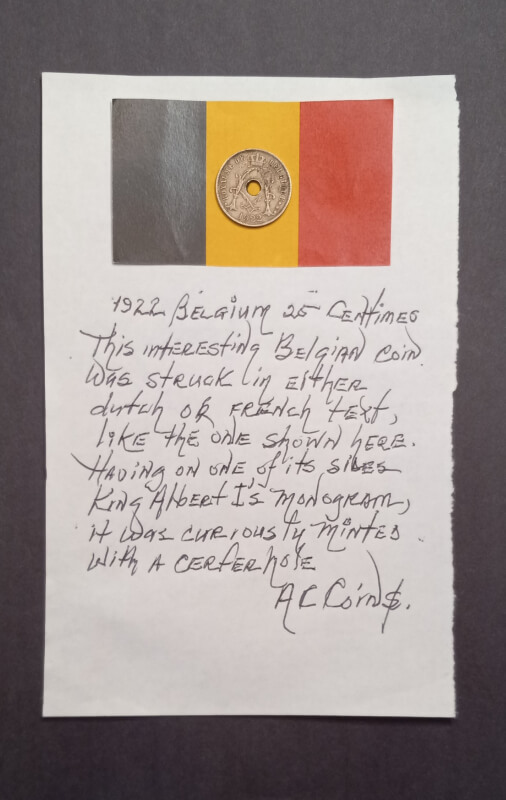 1922 Belgium 25 Centimes
This interesting Belgian coin
was struck in either
dutch or French text,
like the one shown here.
Having on one of its sides
King Albert I's monogram,
it was curiously minted
with a center hole
A C Coin$.